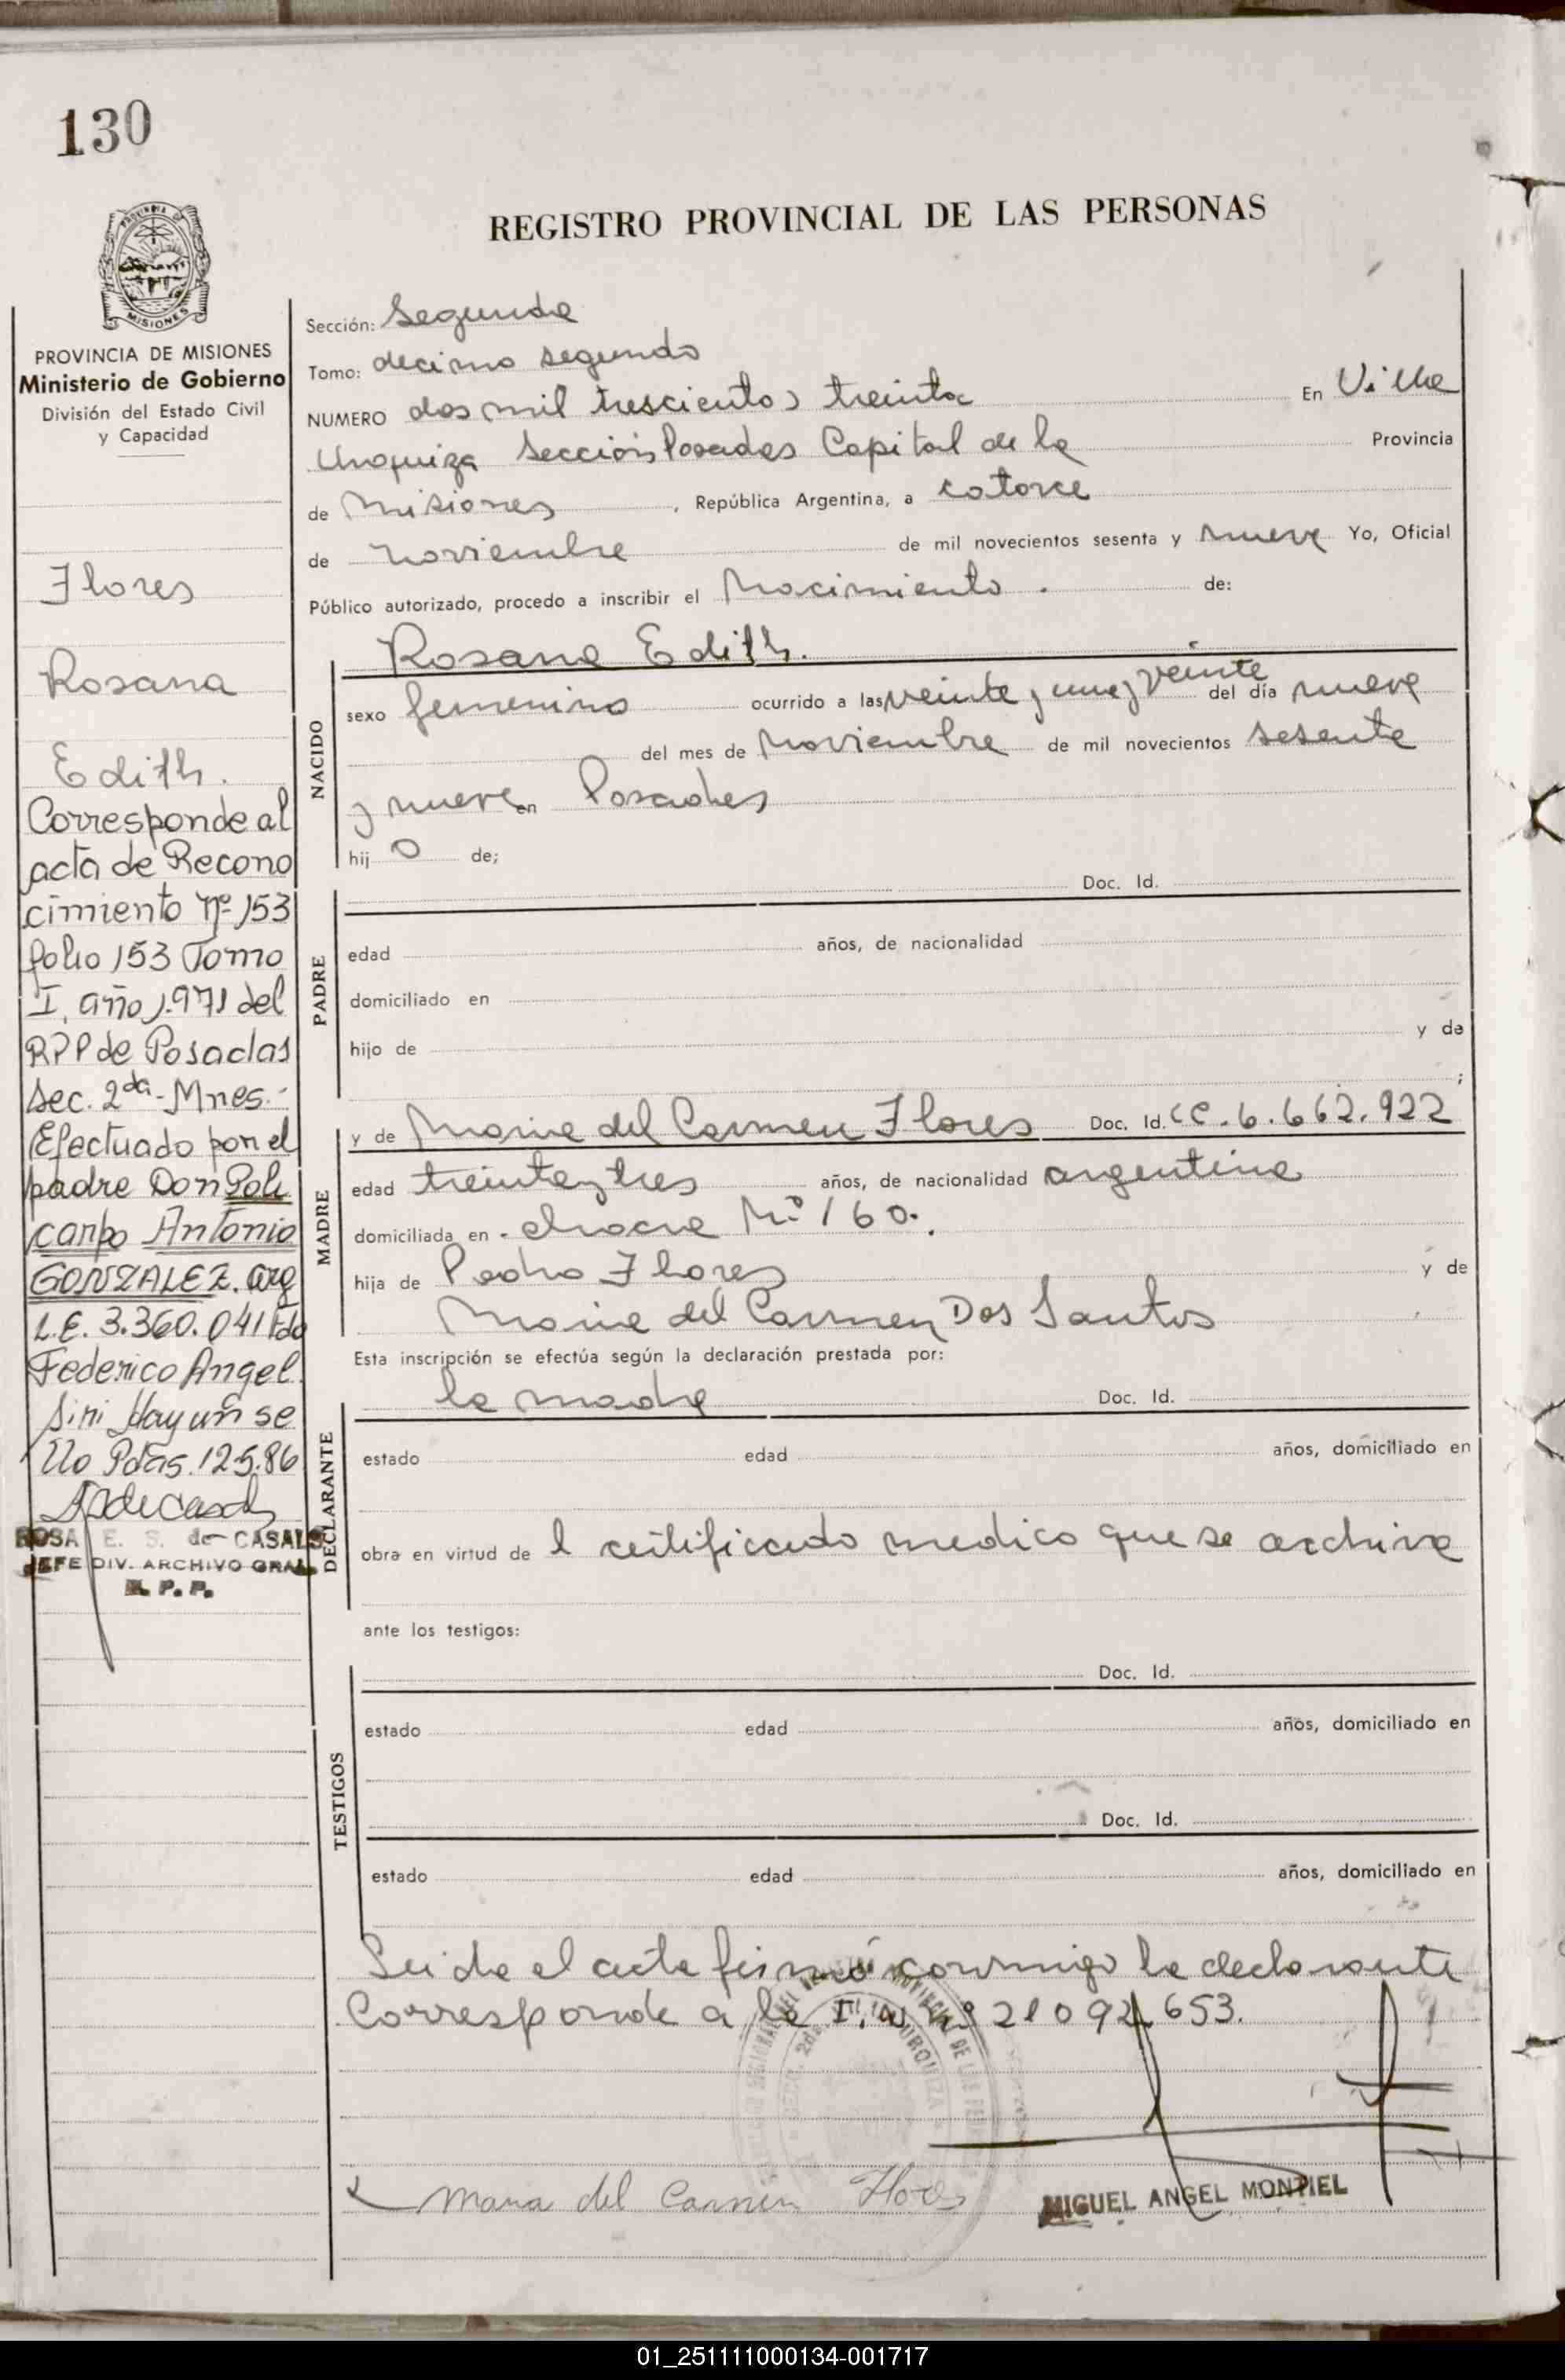 130
PROVINCIA DE MISIONES
Ministerio de Gobierno
División del Estado Civil
y Capacidad
REGISTRO PROVINCIAL DE LAS PERSONAS
Sección: Segunda
Tomo: decimo segundo
NUMERO dos mil trescientos treinta En Villa
Urquiza Sección Posadas Capital de la Provincia
de Misiones, República Argentina, a catorce
de noviembre de mil novecientos sesenta y nueve Yo, Oficial
Público autorizado, procedo a inscribir el Nacimiento. de:
Rosana Edith.
NACIDO
sexo femenino ocurrido a las veinte y una y veinte del día nueve
del mes de Noviembre de mil novecientos sesenta
y nueve en Posadas
hij o de;
Doc. Id.
PADRE
edad años, de nacionalidad
domiciliado en
hijo de y de
;
MADRE
y de Maria del Carmen Flores Doc. Id. CC. 6.662.922
edad treinta y tres años, de nacionalidad argentina
domiciliada en Nº 160.
hija de Pedro Flores y de
Maria del Carmen Dos Santos
Esta inscripción se efectúa según la declaración prestada por:
la madre Doc. Id.
DECLARANTE
estado edad años, domiciliado en
obra en virtud de l certificado medico que se archiva
ante los testigos:
TESTIGOS
Doc. Id.
estado edad años, domiciliado en
Doc. Id.
estado edad años, domiciliado en
Leida el acta firmó conmigo la declarante
Corresponde a la Nº 21092653.
Maria del Carmen Flores
MIGUEL ANGEL MONTIEL
Flores
Rosana
Edith.
Corresponde al
acta de Recono
cimiento Nº 153
folio 153 Tomo
I, año 1.971 del
RPP de Posadas
Sec. 2da - Mnes.-
Efectuado por el
padre Don Poli
carpo Antonio
GONZALEZ. arg
L.E. 3.360.041 Fdo
Federico Angel
Siri Hay un se
llo Pdas. 12.5.86
ROSA E. S. de CASALS
JEFE DIV. ARCHIVO GRAL.
R. P. P.
01_251111000134-001717